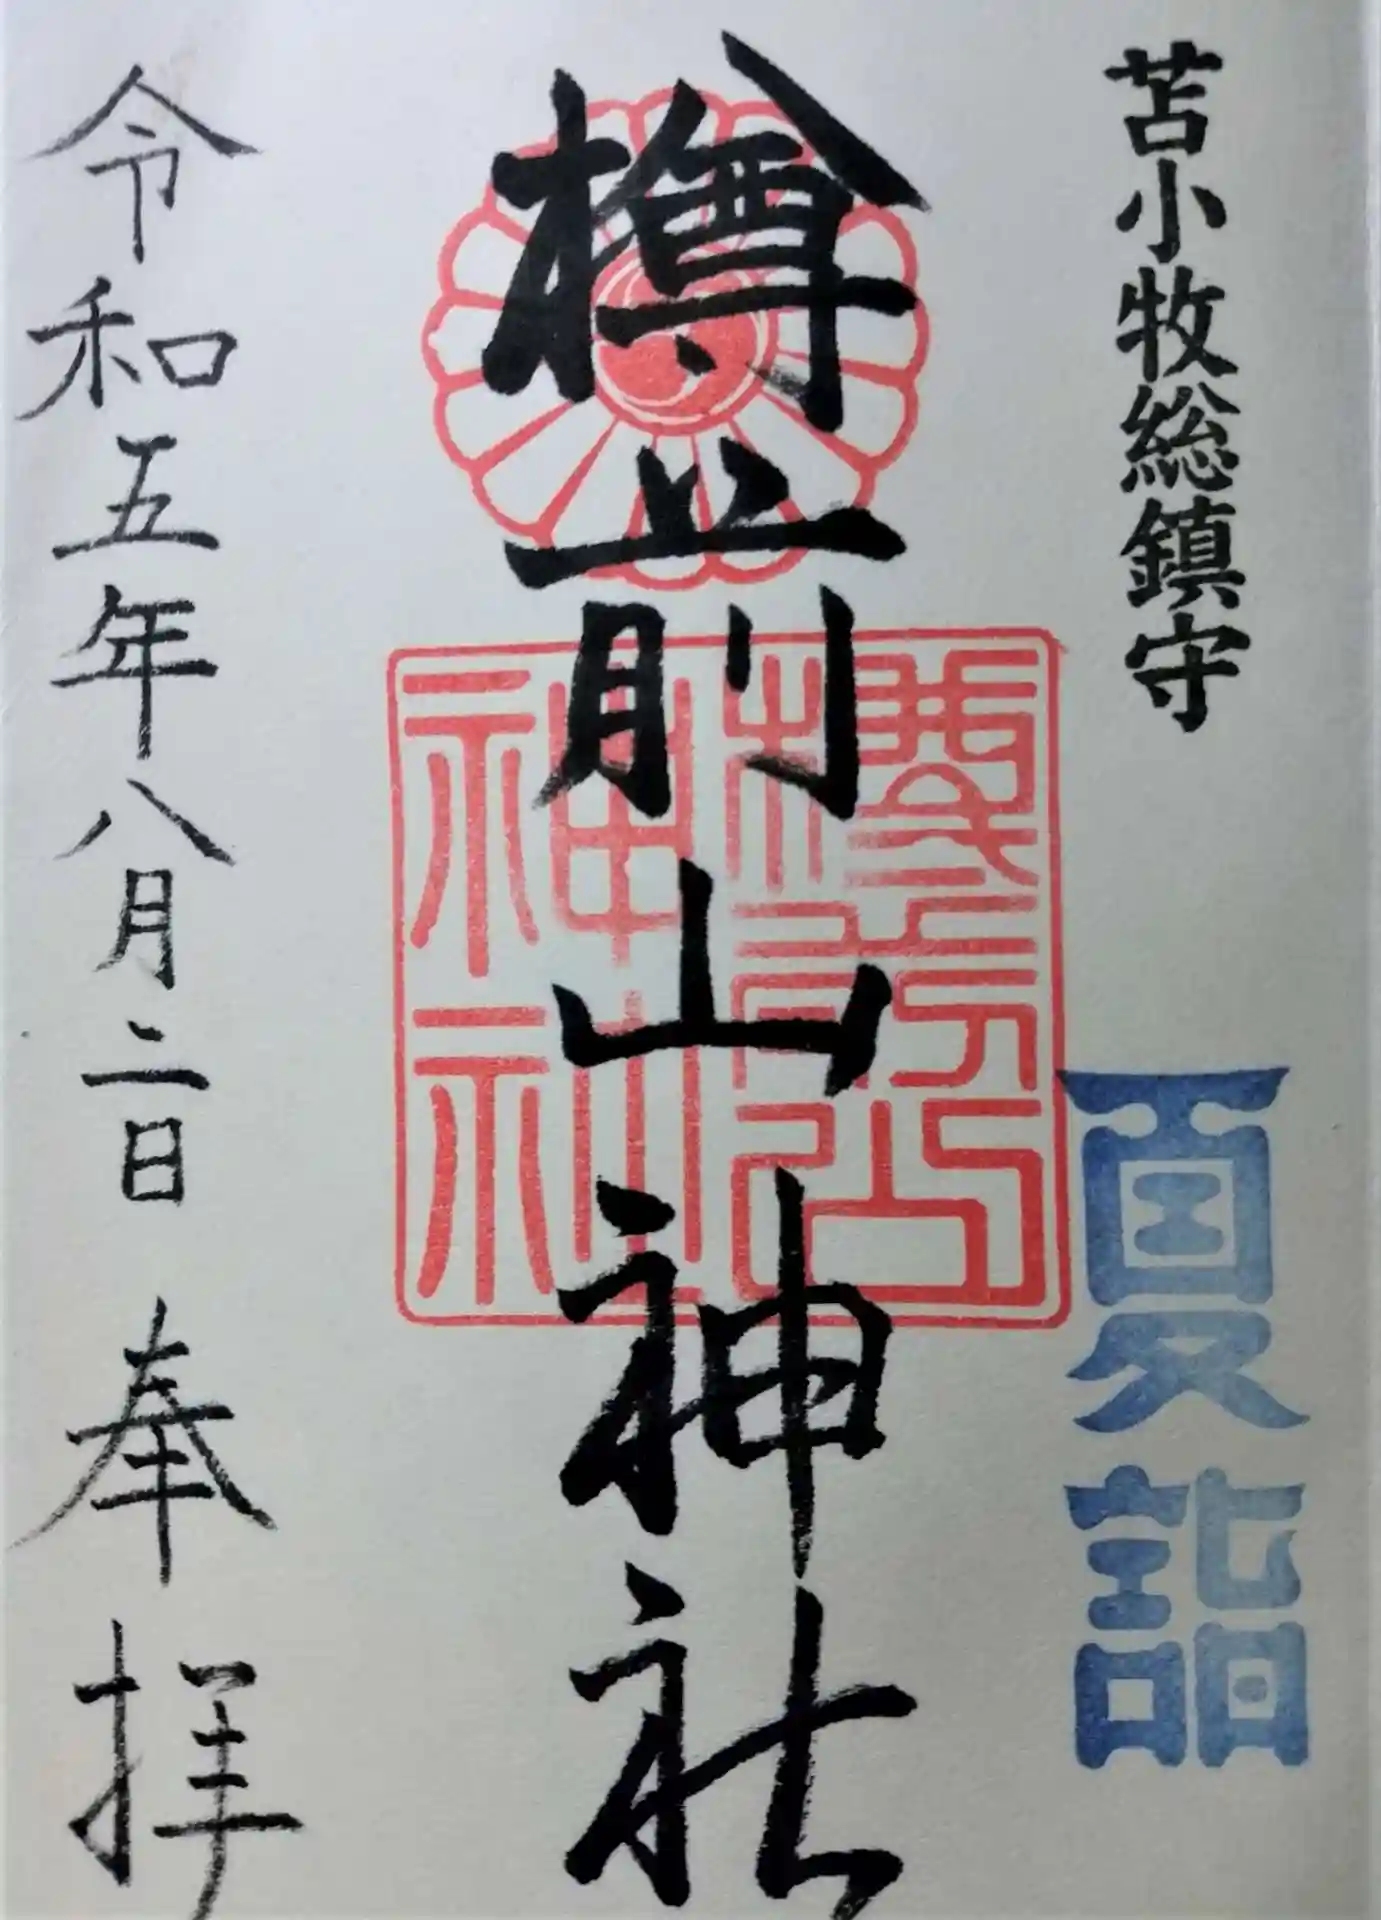 苫小牧総鎮守
夏詣
樽前山神社
樽前山神社
令和五年八月二日 奉拝